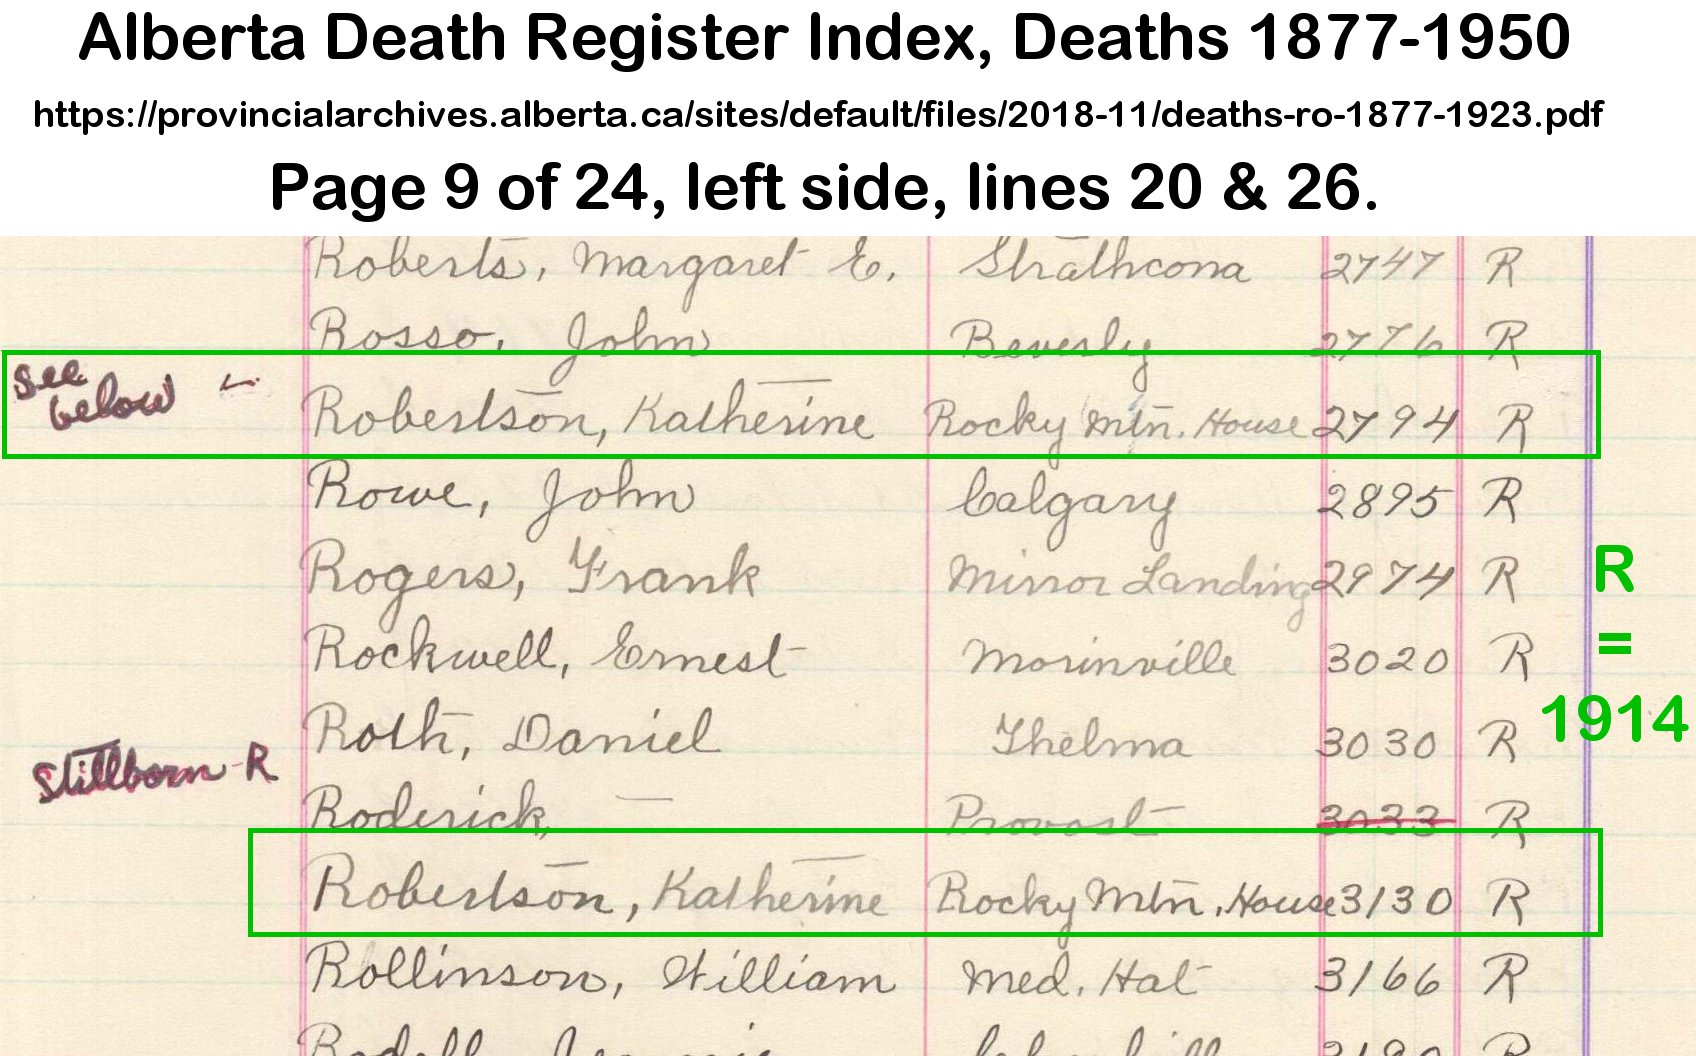 Alberta Death Register Index, Deaths 1877-1950
https://provincialarchives.alberta.ca/sites/default/files/2018-11/deaths-ro-1877-1923.pdf
Page 9 of 24, left side, lines 20 & 26.
Roberts, Margaret E. Strathcona 2747 R
Rosso, John Beverly 2776 R
see below Robertson, Katherine Rocky Mtn. House 2794 R
Rowe, John Calgary 2895 R
Rogers, Frank Mirror Landing 2974 R
Rockwell, Ernest Morinville 3020 R
Roth, Daniel Thelma 3030 R
R
=
1914
Stillborn-R Roderick, — Provost 3033 R
Robertson, Katherine Rocky Mtn. House 3130 R
Rollinson, William Med. Hat 3166 R